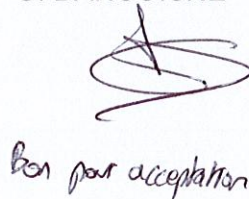 Bon pour acceptation